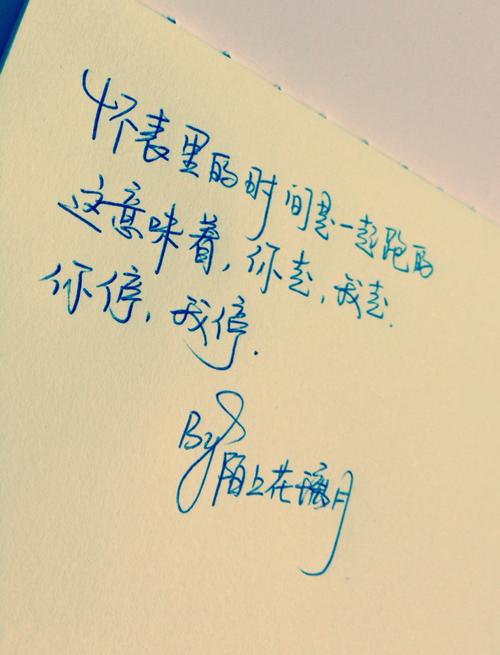 怀表里的时间是一起跑的
这意味着，你走，我走.
你停，我停.
By 陌上花璃月